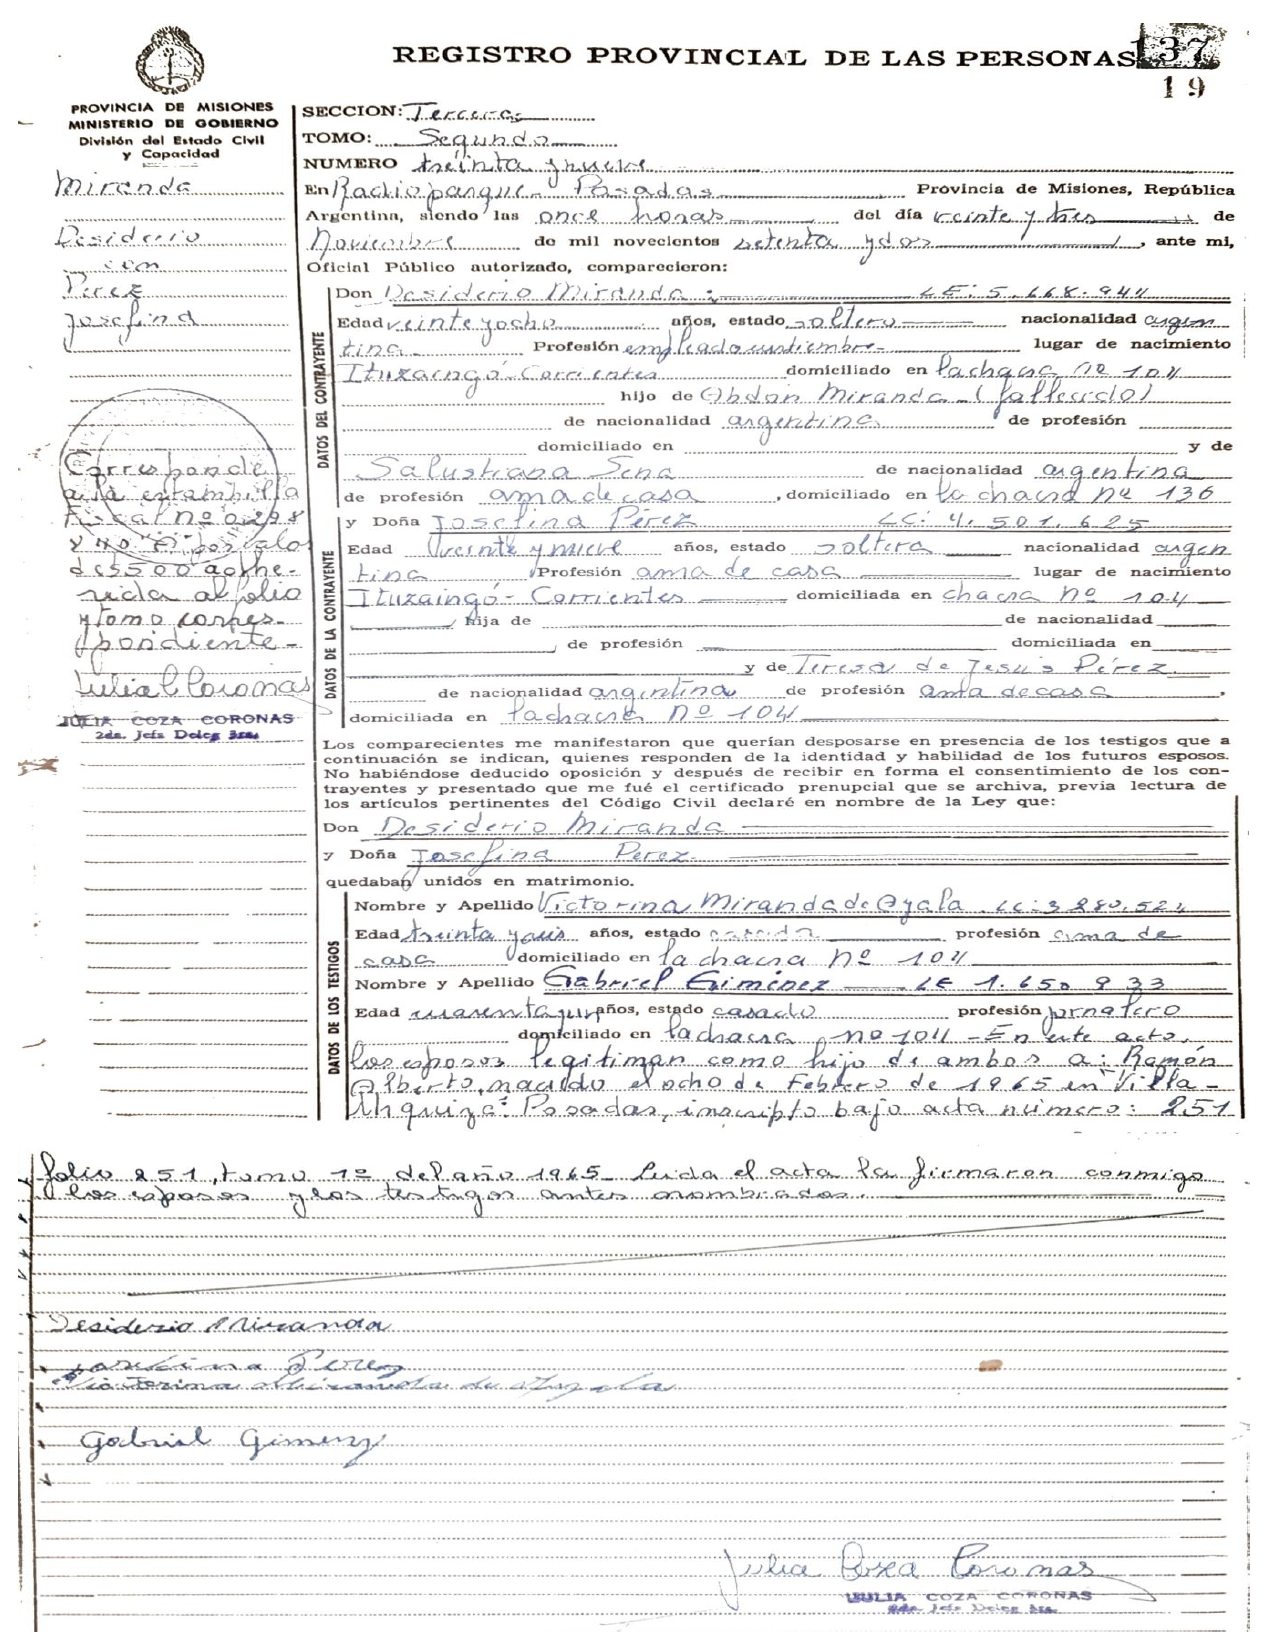 REGISTRO PROVINCIAL DE LAS PERSONAS 137
19
PROVINCIA DE MISIONES
MINISTERIO DE GOBIERNO
División del Estado Civil
y Capacidad
Miranda
Desiderio
con
Pérez
Josefina
Corresponde
a la estampilla
Fiscal nº 0298
por valor
de $500 adhe-
rida al folio
y tomo corres-
pondiente-
Julia C Coronas
JULIA COZA CORONAS
2da. Jefa Deleg
SECCION: Tercera
TOMO: Segundo
NUMERO treinta y nueve
En Radioparque- Posadas Provincia de Misiones, República
Argentina, siendo las once horas del día veinte y tres de
Noviembre de mil novecientos setenta y dos, ante mi,
Oficial Público autorizado, comparecieron:
DATOS DEL CONTRAYENTE
Don Desiderio Miranda: LE: 5.668.944
Edad veinte y ocho años, estado soltero nacionalidad argen
tina Profesión empleado lugar de nacimiento
Ituzaingó-Corrientes domiciliado en la chacra nº 104
hijo de Abdón Miranda-(fallecido)
de nacionalidad argentina de profesión
domiciliado en y de
Salustiana Sena de nacionalidad argentina
de profesión ama de casa, domiciliado en la chacra nº 136
DATOS DE LA CONTRAYENTE
y Doña Josefina Pérez LC: 4.501.625
Edad veinte y nueve años, estado soltera nacionalidad argen
tina Profesión ama de casa lugar de nacimiento
Ituzaingó- Corrientes domiciliada en chacra nº 104
hija de de nacionalidad
de profesión domiciliada en
y de Teresa de Jesús Pérez
de nacionalidad argentina de profesión ama de casa,
domiciliada en la chacra nº 104
Los comparecientes me manifestaron que querían desposarse en presencia de los testigos que a
continuación se indican, quienes responden de la identidad y habilidad de los futuros esposos.
No habiéndose deducido oposición y después de recibir en forma el consentimiento de los con-
trayentes y presentado que me fué el certificado prenupcial que se archiva, previa lectura de
los artículos pertinentes del Código Civil declaré en nombre de la Ley que:
Don Desiderio Miranda
y Doña Josefina Perez
quedaban unidos en matrimonio.
DATOS DE LOS TESTIGOS
Nombre y Apellido Victorina Miranda de Ayala. LC: 3280.524
Edad treinta y seis años, estado casada profesión ama de
casa domiciliado en la chacra nº 104
Nombre y Apellido Gabriel Giménez LE 1.650 933
Edad cuarenta y un años, estado casado profesión jornalero
domiciliado en la chacra nº 104 -En este acto,
los esposos legitiman como hijo de ambos a: Ramón
Alberto, nacido el ocho de Febrero de 1965 en "Villa-
Urquiza" Posadas, inscripto bajo acta número: 251
folio 251, tomo 1º del año 1965- Leida el acta la firmaron conmigo
los esposos y los testigos antes nombrados.
Desiderio Miranda
Josefina Perez
Victorina Miranda de Ayala
Gabriel Gimenz
Julia Coza Coronas
JULIA COZA CORONAS
2da. Jefa Deleg